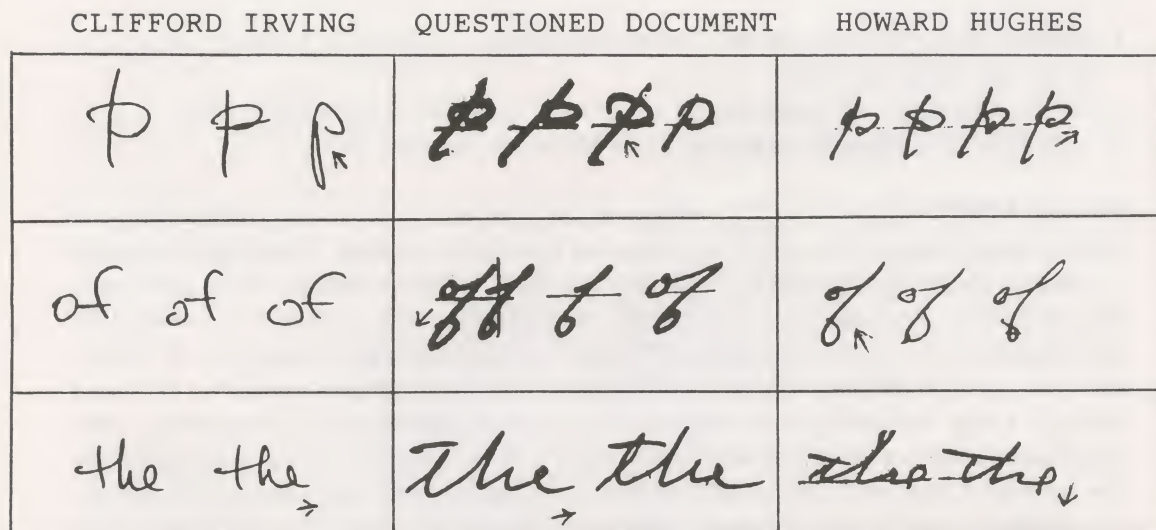 CLIFFORD IRVING QUESTIONED DOCUMENT HOWARD HUGHES
p p p p p p p p p p p
of of of of f of of of of
the the the the the the